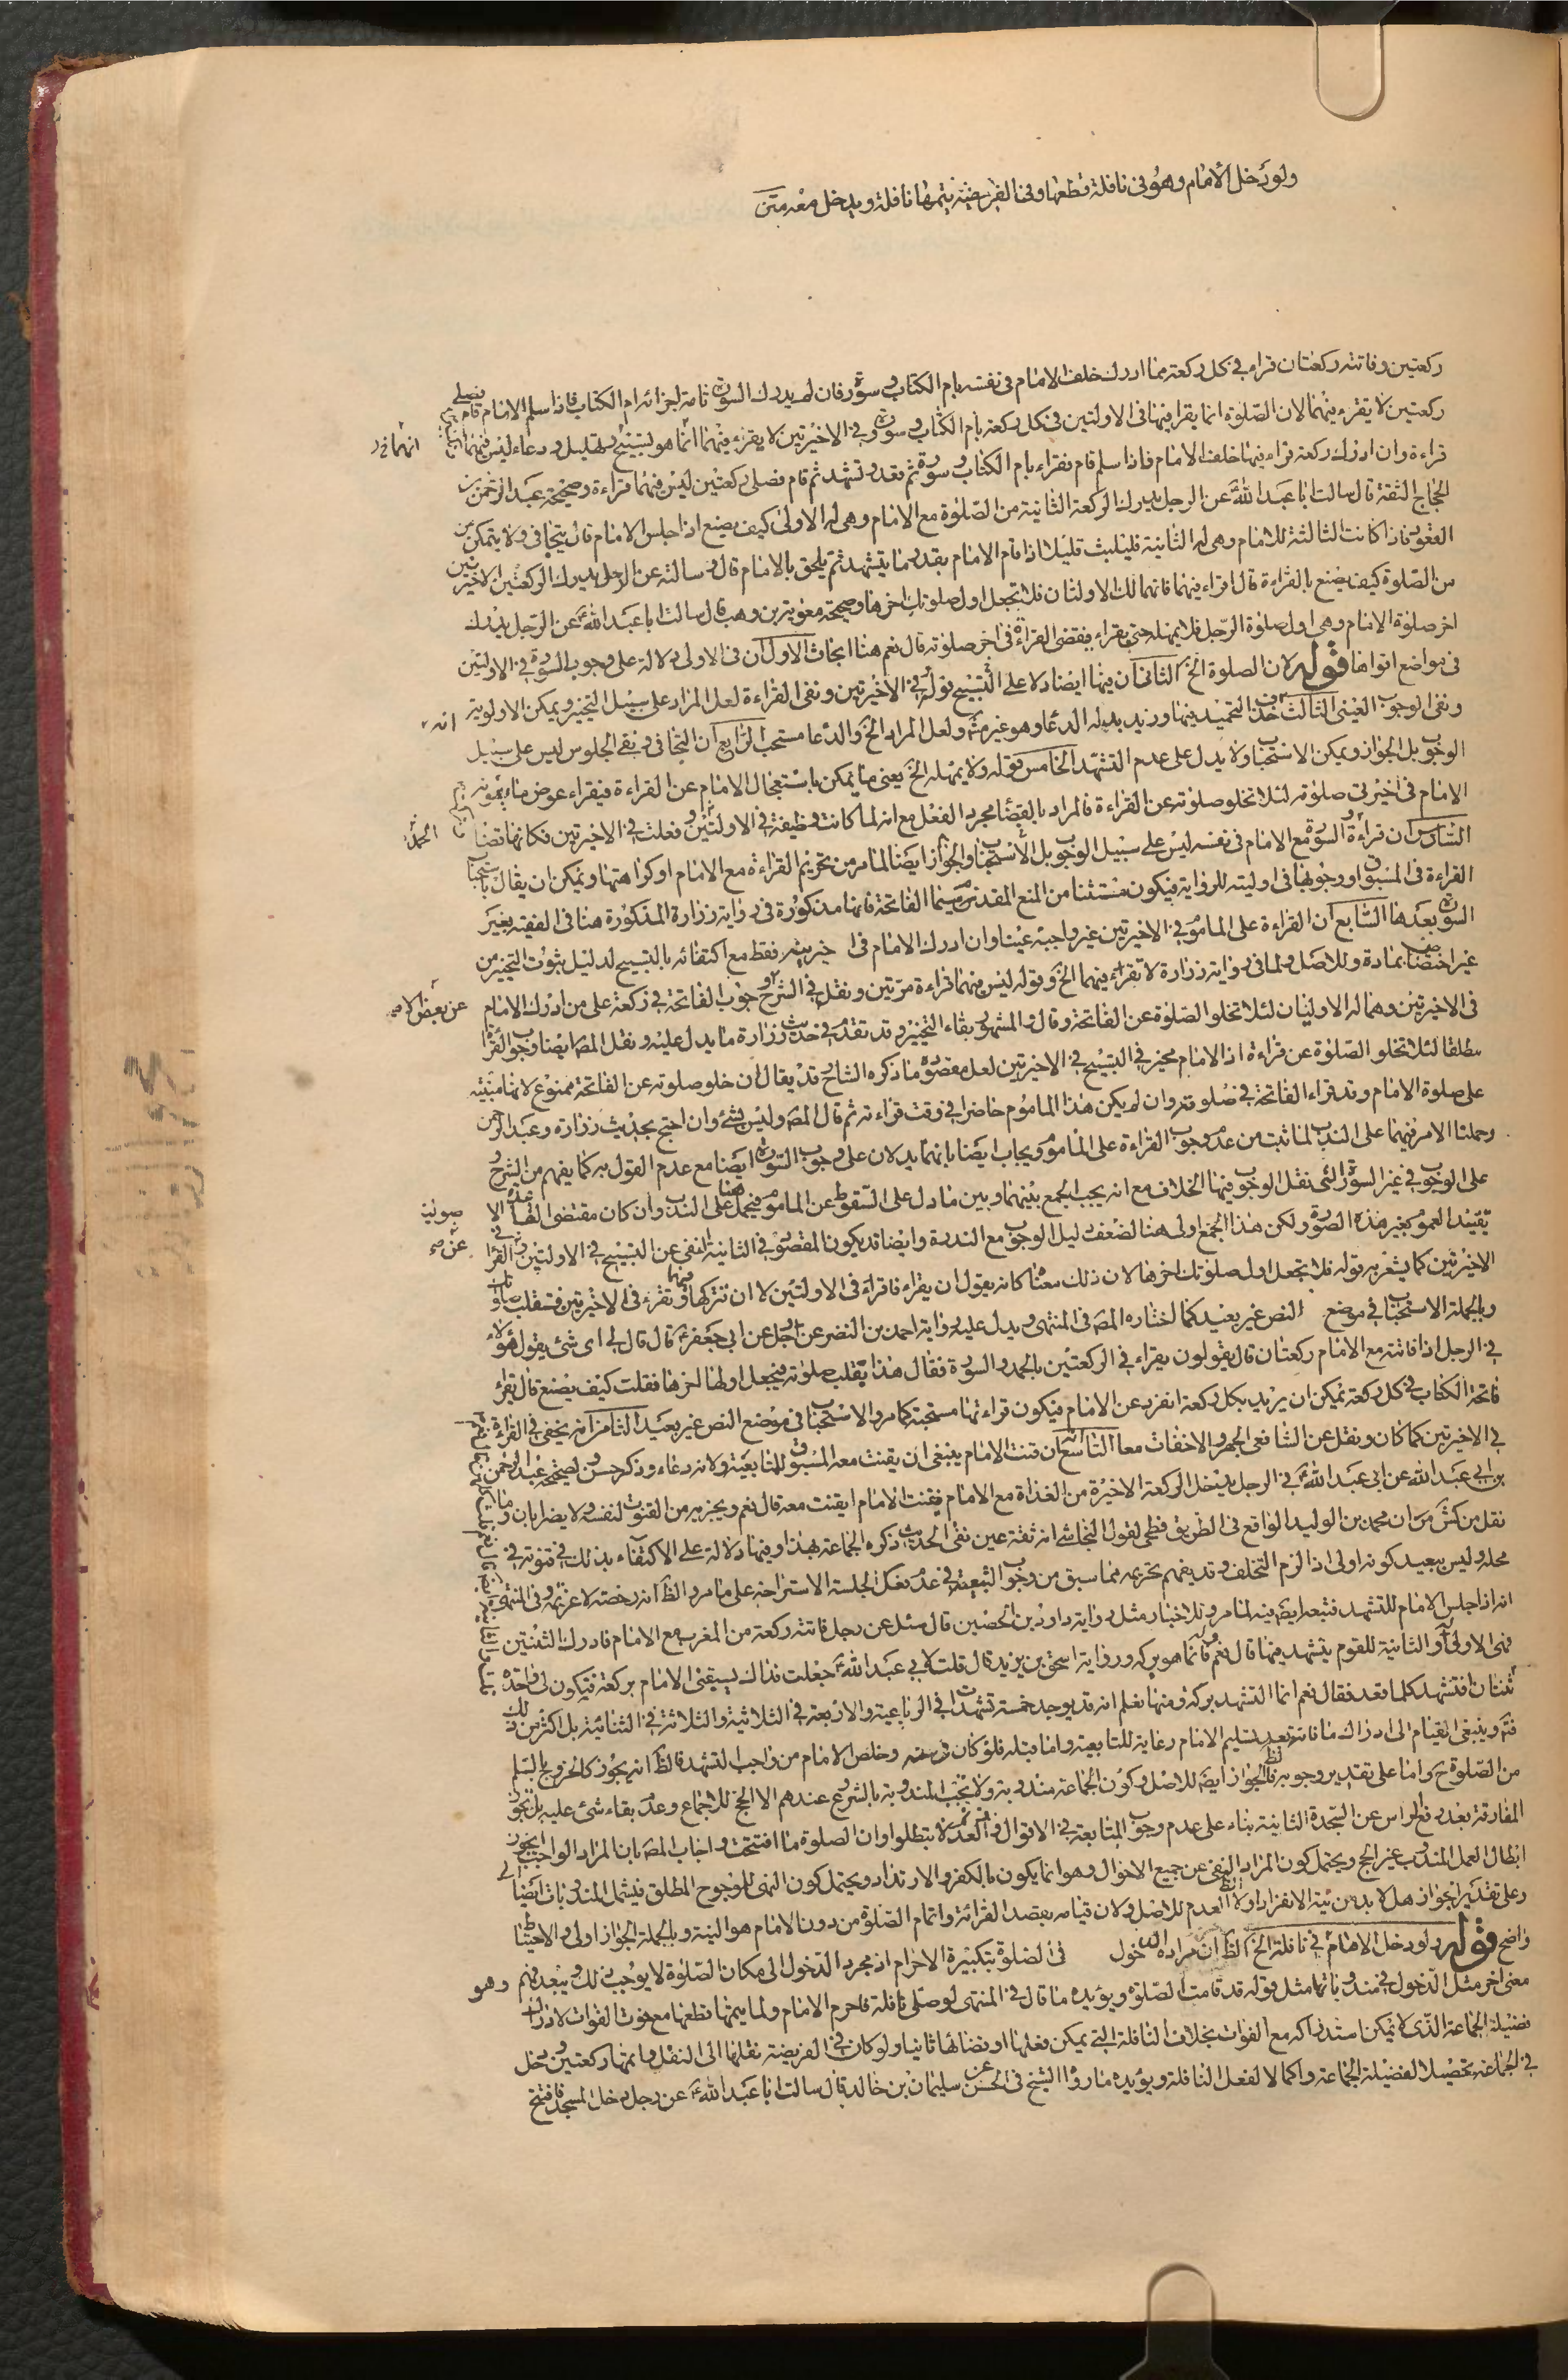 ولو دخل الامام وهو فى نافلة قطعها وفى الفريضة يتمها نافلة ويدخل معه متن
ركعتين وفاتته ركعتان قراء في كل ركعة مما ادرك خلف الامام فى نفسه بام الكتاب وسورة فان لم يدرك السورة تامة اجزائه ام الكتاب فاذا سلم الامام قام فصلى
ركعتين لا يقرء فيهما لان الصلوة انما يقرء فيها فى الاولتين فى كل ركعة بام الكتاب وسورة وفي الاخيرتين لا يقرء فيهما انما هو تسبيح وتهليل ودعاء ليس فيهما
قراءة وان ادرك ركعة قراء فيها خلف الامام فاذا سلم قام فقراء بام الكتاب وسورة ثم قعد وتشهد ثم قام فصلى ركعتين ليس فيهما قراءة وصحيحة عبد الرحمن بن
الحجاج الثقة قال سالت ابا عبد الله عن الرجل يدرك الركعة الثانية من الصلوة مع الامام وهى له الاولى كيف يصنع اذا جلس الامام قال يتجافى ولا يتمكن من
القعود فاذا كانت الثالثة للامام وهى له الثانية فليلبث قليلا اذا قام الامام بقدر ما يتشهد ثم يلحق بالامام قال وسالته عن الرجل يدرك الركعتين الاخيرتين
من الصلوة كيف يصنع بالقراءة قال اقراء فيهما فانهما لك الاولتان فلا تجعل اول صلوتك اخرها وصحيحة معوية بن وهب قال سالت ابا عبد الله عن الرجل يدرك
اخر صلوة الامام وهى اول صلوة الرجل فلا يمهله حتى يقراء فيقضى القراءة فى اخر صلوته قال نعم هنا ابحاث الاول ان فى الاولى دلالة على وجوب السورة في الاولتين
فى مواضع اقواها قوله لان الصلوة الخ الثانى ان فيها ايضا دلالة على التسبيح بقوله في الاخيرتين ونفى القراءة لعل المراد على سبيل التخيير ويمكن الاولوية
ونفى الوجوب العينى الثالث حذف التحميد فيها وزيد بدله الدعا وهو غير مضر ولعل المراد الخ والدعا مستحب الرابع ان التجافى ونفى الجلوس ليس على سبيل
الوجوب بل الجواز ويمكن الاستحباب ولا يدل على عدم التشهد الخامس قوله ولا يمهله الخ يعنى ما يمكن باستعجال الامام عن القراءة فيقراء عوض ما يفوته
الامام فى اخيرتى صلوته لئلا تخلو صلوته عن القراءة فالمراد بالقضا مجرد الفعل مع انه لما كانت وظيفة فى الاولتين وفعلت في الاخيرتين فكانها قضا
السادس ان قراءة السورة مع الامام فى نفسه ليس على سبيل الوجوب بل الاستحباب والجواز ايضا لما مر من تحريم القراءة مع الامام او كراهتها ويمكن ان يقال باستحباب
القراءة فى المسبوق او وجوبها فى اوليته للرواية فيكون مستثنا من المنع المقدم سيما الفاتحة فانها مذكورة فى رواية زرارة المذكورة هنا فى الفقيه بغير
السورة بعدها السابع ان القراءة على الماموم في الاخيرتين غير واجبة عينا وان ادرك الامام فى اخيرتيه فقط مع اكتفائه بالتسبيح لدليل ثبوت التخيير من
غير اختصاص بمادة وللاصل ولما فى رواية زرارة لا تقراء فيهما الخ وقوله ليس فيهما قراءة مرتين ونقل في الشرح وجوب الفاتحة في ركعة على من ادرك الامام
فى الاخيرتين وهما له الاوليان لئلا تخلو الصلوة عن الفاتحة وقال والمشهور بقاء التخيير وقد تقدم في حديث زرارة ما يدل عليه ونقل المص ايضا وجوب القراءة
مطلقا لئلا تخلو الصلوة عن قراءة اذ الامام مخير في التسبيح في الاخيرتين لعل مقصوده ما ذكره الشارح قد يقال ان خلو صلوته عن الفاتحة ممنوع لانها مبنية
على صلوة الامام وقد قراء الفاتحة في صلوته وان لم يكن هذا الماموم حاضرا في وقت قراءته ثم قال المص وليس بشئ وان احتج بحديث زرارة وعبد الرحمن
وحملنا الامر فيهما على الندب لما ثبت من عدم وجوب القراءة على الماموم ويجاب ايضا بانهما يدلان على وجوب السورة ايضا مع عدم القول به كما يفهم من الشرح
على الوجوب في غير السورة التى نقل الوجوب فيها الخلاف مع انه يجب الجمع بينهما وبين ما دل على السقوط عن الماموم فيحمل هنا على الندب وان كان مقتضى القاعدة الا
تقييد العموم بغير هذه الصورة ولكن هذا الجمع اولى هنا لضعف دليل الوجوب مع الندرة وايضا قد يكون المقصود في الثانية النفى عن التسبيح في الاولتين والقراءة في
الاخيرتين كما يشعر به قوله فلا تجعل اول صلوتك اخرها لان ذلك معناه كانه يقول ان يقراء فاقراء فى الاولتين لا ان تتركها فيهما وتقرء فى الاخيرتين فتنقلب صلوتك
وبالجملة الاستحباب في موضع النص غير بعيد كما اختاره المص فى المنتهى ويدل عليه رواية احمد بن النضر عن رجل عن ابى جعفر قال قال لى اى شئ يقول هؤلاء
في الرجل اذا فاتته مع الامام ركعتان قال يقولون يقراء في الركعتين بالحمد والسورة فقال هذا يقلب صلوته فيجعل اولها اخرها فقلت كيف يصنع قال يقراء
فاتحة الكتاب في كل ركعة يمكن ان يريد بكل ركعة انفرد عن الامام فيكون قراءتها مستحبة كما مر والاستحباب فى موضع النص غير بعيد الثامن انه يخفى في القراءة
في الاخيرتين كما كان ونقل عن الشافعى الجهر والاخفات معا التاسع ان قنت الامام ينبغى ان يقنت معه المسبوق للمتابعة ولانه دعاء وذكر حسن ولصحيحة عبد الرحمن
بن ابى عبد الله عن ابى عبد الله في الرجل يدخل الركعة الاخيرة من الغداة مع الامام فقنت الامام ايقنت معه قال نعم ويجزيه من القنوت لنفسه ولا يضر ابان وما
نقل من كش من ان محمد بن الوليد الواقع فى الطريق فطحى لقول النجاشى انه ثقة عين نقى الحديث ذكره الجماعة بهذا وفيها دلالة على الاكتفاء بذلك في قنوته في
محله وليس ببعيد كونه اولى اذا لزم التخلف وقد يفهم تحريمه مما سبق من وجوب التبعية في عدم فعل الجلسة الاستراحة على ما مر والظ انه رخصة لا عزيمة وفى المنتهى
انه اذا جلس الامام للتشهد فتبعه ايض فيه لما مر وللاخبار مثل رواية داود بن الحصين قال سئل عن رجل فاتته ركعة من المغرب مع الامام فادرك الثنتين
فهى الاولى له والثانية للقوم يتشهد فيها قال نعم فانما هو بركة ورواية اسحق بن يزيد قال قلت لابى عبد الله جعلت فداك يسبقنى الامام بركعة فيكون لى واحدة
ثنتان افتشهد كلما قعد فقال نعم انما التشهد بركة ومنها نعلم انه قد يوجد خمسة تشهدات في الرباعية والاربعة في الثلاثية والثلاثة في الثنائية بل اكثر من ذلك
فتم وينبغى القيام الى ادراك ما فاتته بعد تسليم الامام رعاية للمتابعة واما قبله فلو كان وخلص الامام من واجب التشهد فالظ انه يجوز كالخروج بالتسليم
من الصلوة ح واما على تقدير وجوبه فالظ الجواز ايض للاصل وكون الجماعة مندوبة ولا يجب المندوبة بالشروع عندهم الا الحج للاجماع وعدم بقاء شئ عليه بل يجوز
المفارقة بعد رفع الراس عن السجدة الثانية بناء على عدم وجوب المتابعة في الاقوال لا تبطلوا وان الصلوة ما افتتحت واجاب المص بان المراد الواجب لجواز
ابطال العمل المندوب غير الحج ويحتمل كون المراد النفى عن جميع الاحوال وهو انما يكون بالكفر والارتداد ويحتمل كون النهى للمرجوح المطلق فيشمل المندوبات ايضا
وعلى تقدير الجواز هل لا بد من نية الانفراد اولا الظ العدم للاصل ولان قيامه بقصد القرائة واتمام الصلوة من دون الامام هو النية وبالجملة الجواز اولى والاحتياط
واضح قوله ولو دخل الامام في نافلة الخ الظ ان مراده الدخول فى الصلوة بتكبيرة الاحرام اذ مجرد الدخول الى مكان الصلوة لا يوجب ذلك ويبعد فهم وهو
معنى اخر مثل الدخول في مندوباتها مثل قوله قد قامت الصلوة ويؤيده ما قال في المنتهى لو صلى نافلة فاحرم الامام ولما يتمها قطعها مع خوف الفوات لادراك
فضيلة الجماعة الذى لا يمكن استدراكه مع الفوات بخلاف النافلة التى يمكن فعلها او قضائها ثانيا ولو كان في الفريضة نقلها الى النفل واتمها ركعتين ودخل
في الجماعة تحصيلا لفضيلة الجماعة واكمالا لفعل النافلة ويؤيده ما رواه الشيخ فى الحسن عن سليمان بن خالد قال سالت ابا عبد الله عن رجل دخل المسجد فافتتح